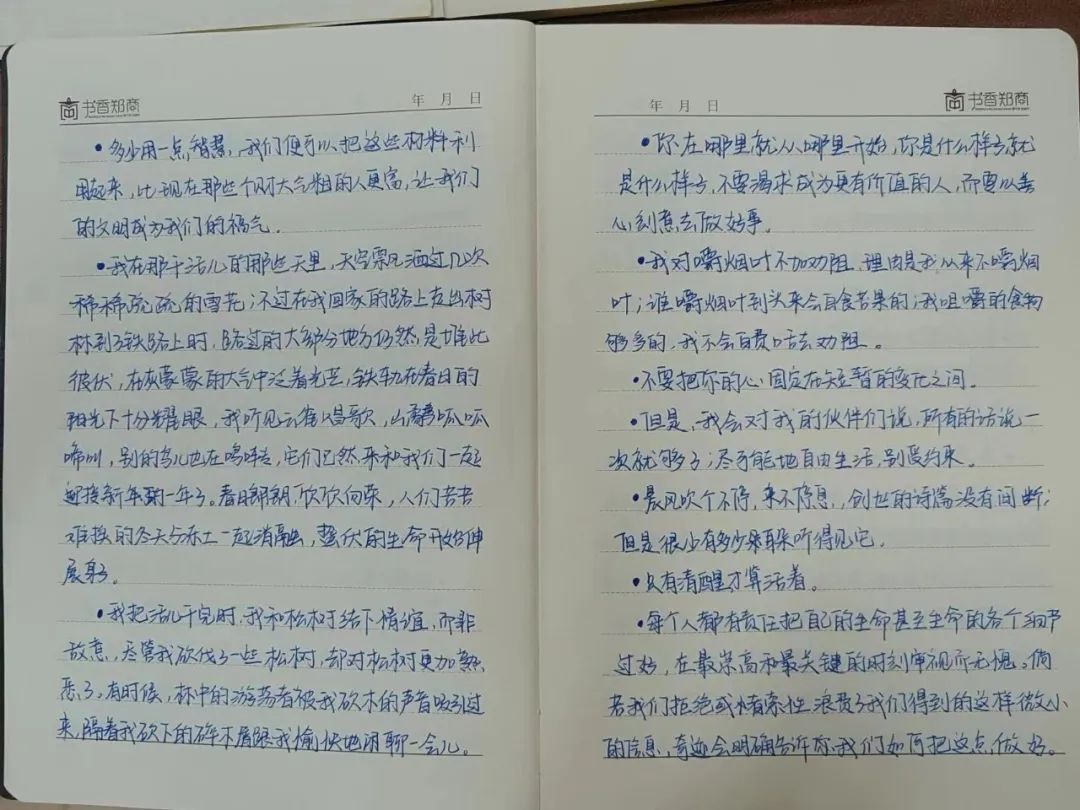 书香郑商
年 月 日
•多少用一点智慧,我们便可以把这些材料利
用起来,比现在那些个财大气粗的人更富,让我们
的文明成为我们的福气。
•我在那干活儿的那些天里,天空飘洒过几次
稀稀疏疏的雪花;不过在我回家的路上走出树
林到了铁路上时,路过的大部分地方仍然是堆此
彼伏,在灰蒙蒙的大气中泛着光芒,铁轨在春日的
阳光下十分耀眼,我听见云雀唱歌,山鹬呱呱
啼叫,别的鸟儿也在鸣啭,它们已然来和我们一起
迎接新年的一年了。春日朗朗,欣欣向荣,人们苦苦
难挨的冬天与冻土一起消融,蛰伏的生命开始伸
展身子。
•我把活儿干完时,我和松树结下情谊,而非
敌意,尽管我砍伐了一些松树,却对松树更加熟
悉了。有时候,林中的游荡者被我砍木的声音吸引过
来,隔着我砍下的碎木屑跟我愉快地闲聊一会儿。
年 月 日
书香郑商
•你在哪里就从哪里开始,你是什么样子就
是什么样子,不要渴求成为更有价值的人,而要以善
心刻意去做好事。
•我对嚼烟叶不加劝阻,理由是我从来不嚼烟
叶;谁嚼烟叶到头来会自食苦果的;我咀嚼的食物
够多的,我不会自费口舌去劝阻。
•不要把你的心固定在短暂的变化之间。
•但是,我会对我的伙伴们说,所有的话说一
次就够了;尽可能地自由生活,别受约束。
•晨风吹个不停,来不停息,创世的诗篇没有间断;
但是很少有多少来耳朵听得见它。
•只有清醒才算活着。
•每个人都有责任把自己的生命甚至生命的各个细节
过好,在最崇高和最关键的时刻审视而无愧。倘
若我们拒绝或者索性浪费了我们得到的这样微小
的信息,奇迹会明确告诉你我们如何把这点做好。